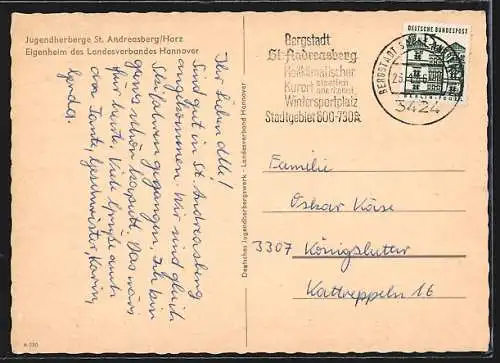 Jugendherberge St. Andreasberg/Harz
Eigenheim des Landesverbandes Hannover
Ihr lieben alle!
Sind gut in St. Andreasberg
angekommen. Wir sind gleich
Skifahren gegangen. Ich bin
ganz schön kaputt. Das wärs
für heute. Viele Grüße auch
an Tante, Geschwister, Karin,
Gerda.
Deutsches Jugendherbergswerk · Landesverband Hannover
Bergstadt
St. Andreasberg
Heilklimatischer
Kurort staatlich
anerkannt
Wintersportplatz
Stadtgebiet 600-730m
BERGSTADT ST. ANDREASBERG
3424
DEUTSCHE BUNDESPOST
BERLIN
Familie
Oskar Käse
3307 Königslutter
Kattreppeln 16